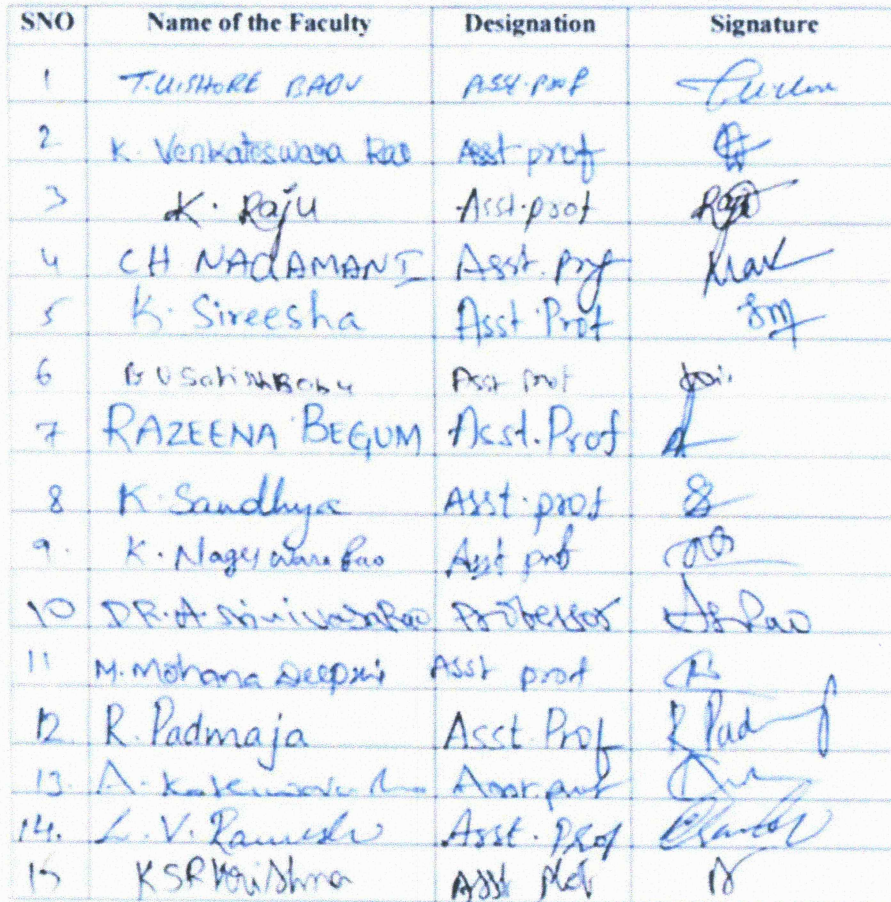 SNO Name of the Faculty Designation Signature
1 T. KISHORE BABU Asst. Prof
2 K. Venkateswara Rao Asst prof
3 K. Raju Asst. prof Raju
4 CH NAGAMANI Asst. Prof
5 K. Sireesha Asst. Prof
6 B V Satish Babu Asst Prof
7 RAZEENA BEGUM Asst. Prof
8 K. Sandhya Asst. prof
9. K. Nageswara Rao Asst prof
10 DR. A. Srinivasa Rao Professor
11 M. Mohana Deepsi Asst prof
12 R. Padmaja Asst. Prof R Pad
13. A. Asst. prof
14. L. V. Ramesh Asst. Prof
15 K S R Krishna Asst Prof